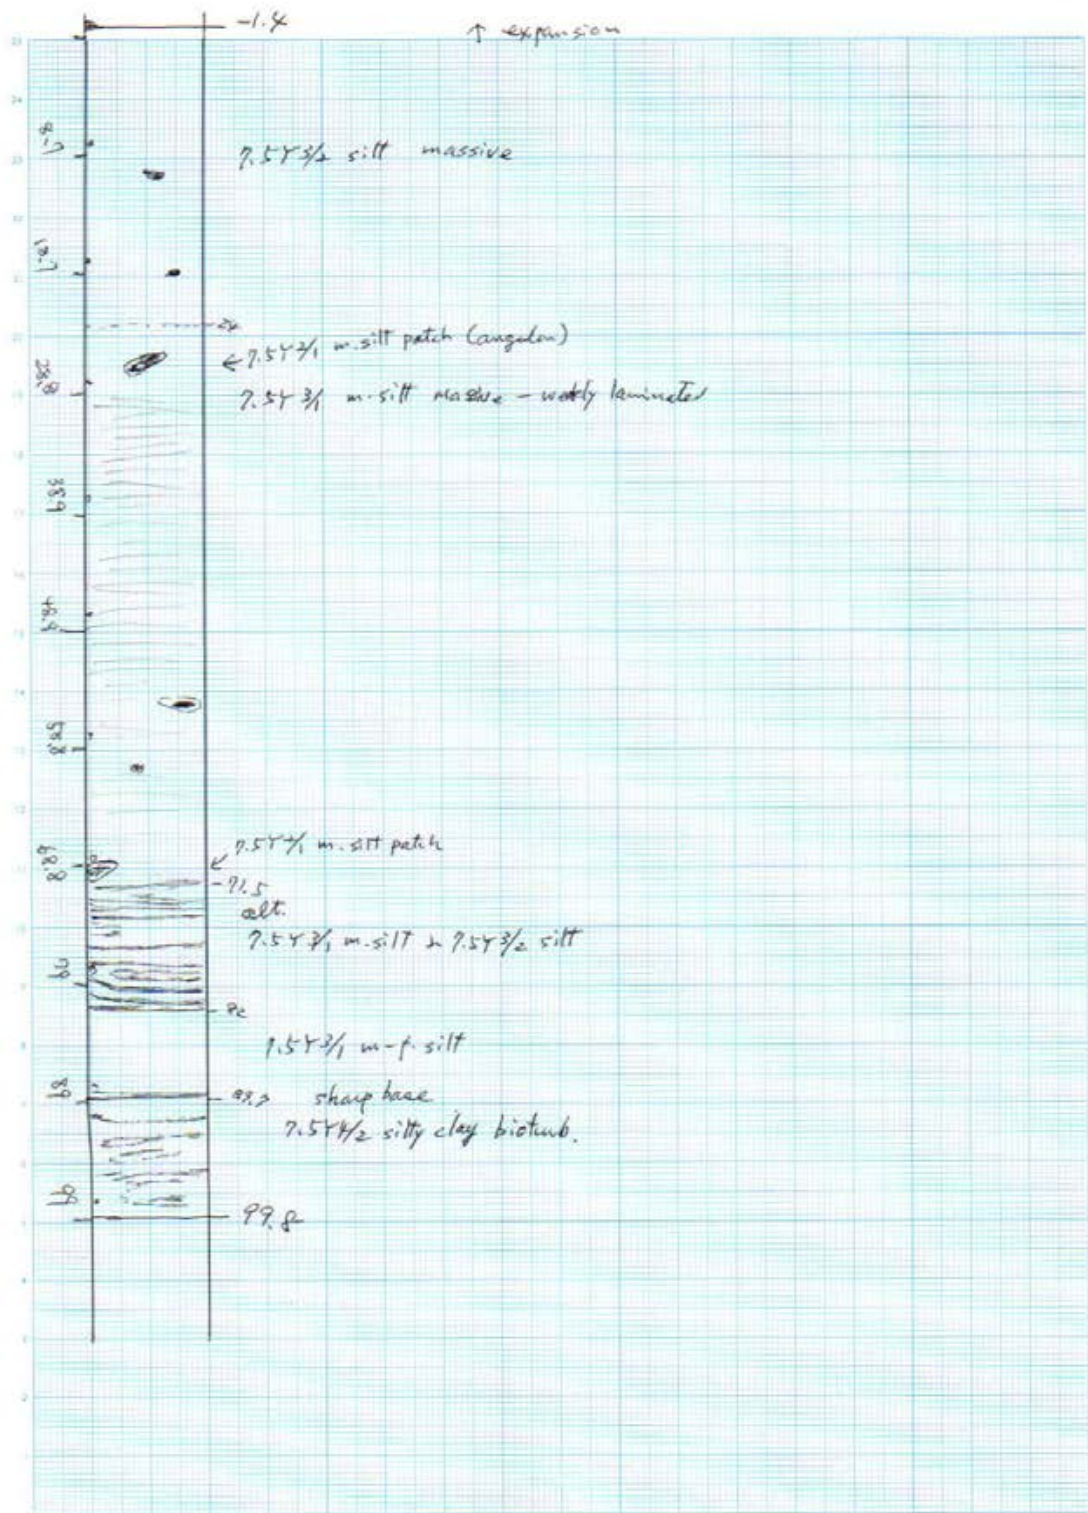 -1.4
↑ expansion
7.5Y3/2 silt massive
24
← 7.5Y2/1 m.silt patch (angular)
7.5Y 3/1 m.silt massive - weakly laminated
7.5Y2/1 m.silt patch
-71.5
alt.
7.5Y3/1 m.silt & 7.5Y3/2 silt
82
7.5Y3/1 m-f. silt
sharp base
7.5Y4/2 silty clay bioturb.
99.8